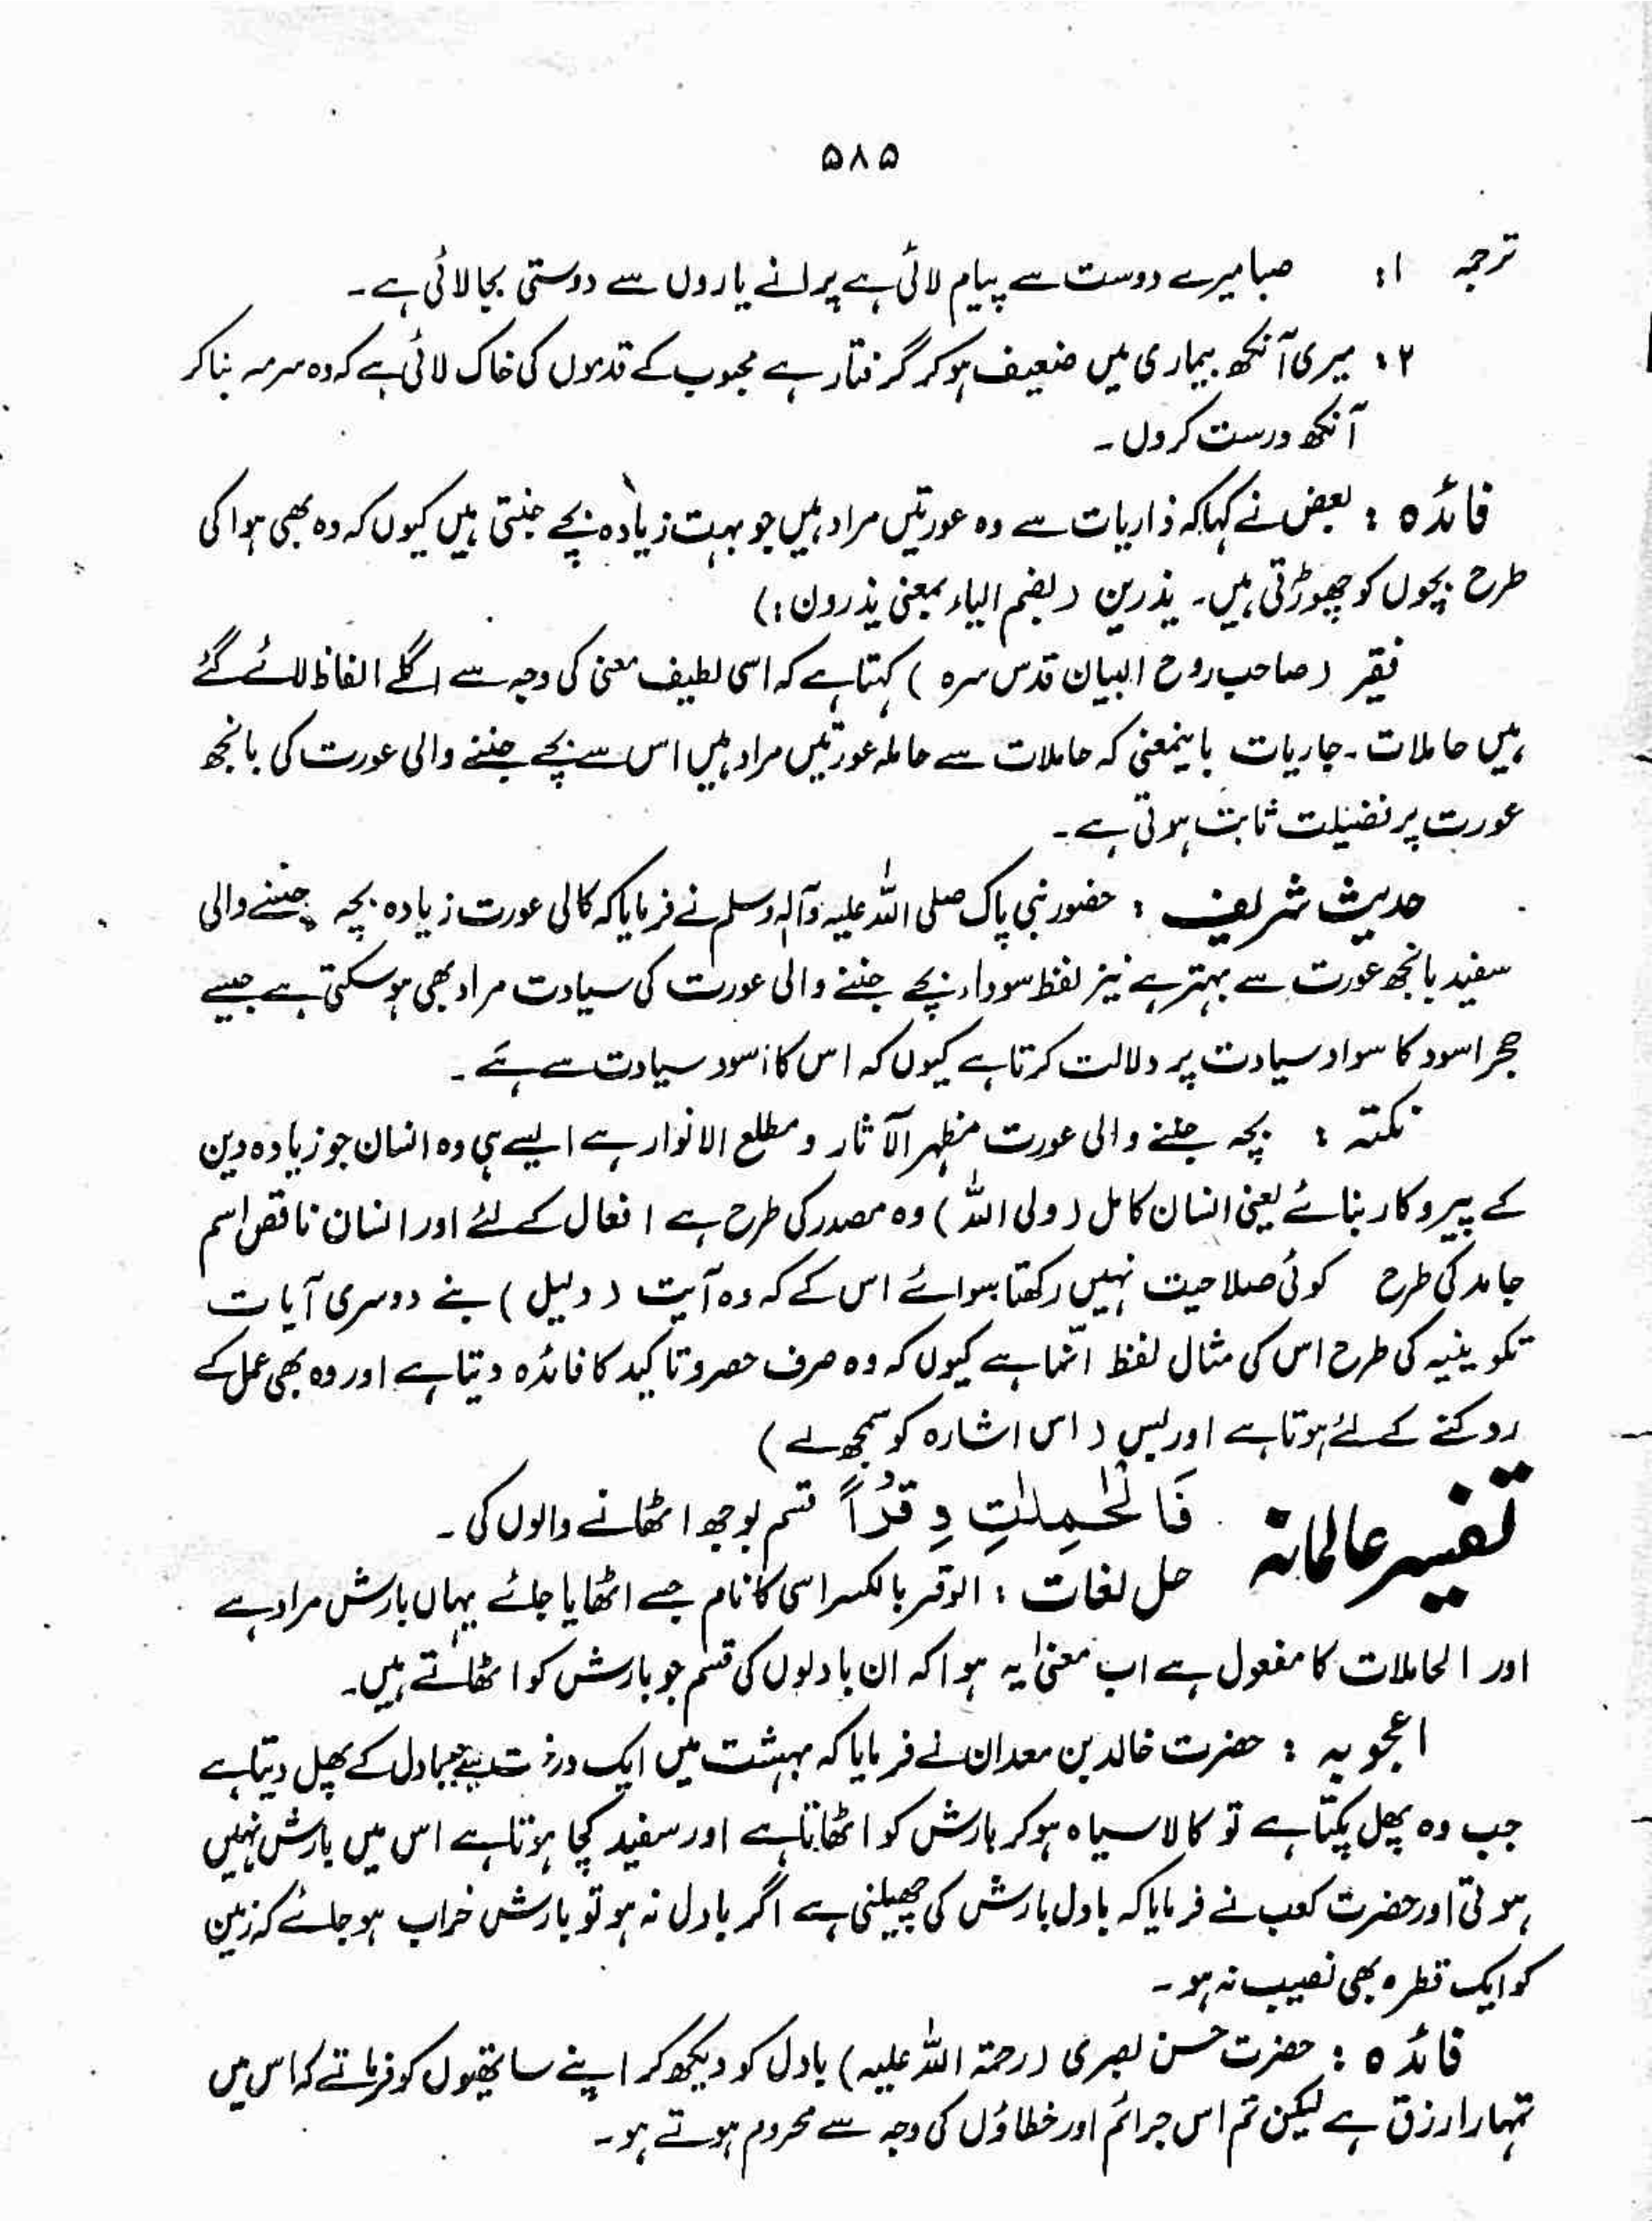 ۵۸۵
ترجمہ ۱: صبا میرے دوست سے پیام لائی ہے پرانے یاروں سے دوستی بجا لائی ہے۔
۲: میری آنکھ بیماری میں ضعیف ہو کر گرفتار ہے محبوب کے قدموں کی خاک لائی ہے کہ وہ سرمہ بنا کر
آنکھ درست کرول۔
فائدہ : بعض نے کہا کہ ذاریات سے وہ عورتیں مراد ہیں جو بہت زیادہ بچے جنتی ہیں کیوں کہ وہ بھی ہوا کی
طرح بچوں کو چھوڑتی ہیں۔ یذرین (بضم الیاء بمعنی یذرون:)
فقیر (صاحب روح البیان قدس سرہ) کہتا ہے کہ اسی لطیف معنی کی وجہ سے اگلے الفاظ لائے گئے
ہیں حاملات۔ جاریات بایںمعنی کہ حاملات سے حاملہ عورتیں مراد ہیں اس سے بچے جننے والی عورت کی بانجھ
عورت پر فضیلت ثابت ہوتی ہے۔
حدیث شریف : حضور نبی پاک صلی اللہ علیہ وآلہ وسلم نے فرمایا کہ کالی عورت زیادہ بچہ جننے والی
سفید بانجھ عورت سے بہتر ہے نیز لفظ سوداء بچے جننے والی عورت کی سیادت مراد بھی ہو سکتی ہے جیسے
حجر اسود کا سواد سیادت پر دلالت کرتا ہے کیوں کہ اس کا اسود سیادت سے ہے۔
نکتہ : بچہ جننے والی عورت مظہر الآثار و مطلع الانوار ہے ایسے ہی وہ انسان جو زیادہ دین
کے پیروکار بنائے یعنی انسان کامل (ولی اللہ) وہ مصدر کی طرح ہے افعال کے لئے اور انسان ناقص اسم
جامد کی طرح کوئی صلاحیت نہیں رکھتا سوائے اس کے کہ وہ آیت (دلیل) بنے دوسری آیات
تکوینیہ کی طرح اس کی مثال لفظ انّما ہے کیوں کہ وہ صرف حصر و تاکید کا فائدہ دیتا ہے اور وہ بھی عمل کے
روکنے کے لئے ہوتا ہے اور بس (اس اشارہ کو سمجھ لے)
تفسیر عالمانہ فَالْحٰمِلٰتِ وِقْرًا قسم بوجھ اٹھانے والوں کی۔
حل لغات : الوقر بالکسر اسی کا نام جسے اٹھایا جائے یہاں بارش مراد ہے
اور الحاملات کا مفعول ہے اب معنیٰ یہ ہوا کہ ان بادلوں کی قسم جو بارش کو اٹھاتے ہیں۔
اعجوبہ : حضرت خالد بن معدان نے فرمایا کہ بہشت میں ایک درخت ہے بادل کے پھل دیتا ہے
جب وہ پھل پکتا ہے تو کالا سیاہ ہو کر بارش کو اٹھاتا ہے اور سفید کچا ہوتا ہے اس میں بارش نہیں
ہوتی اور حضرت کعب نے فرمایا کہ بادل بارش کی چھلنی ہے اگر بادل نہ ہو تو بارش خراب ہو جائے کہ زمین
کو ایک قطرہ بھی نصیب نہ ہو۔
فائدہ : حضرت حسن بصری (رحمۃ اللہ علیہ) بادل کو دیکھ کر اپنے ساتھیوں کو فرماتے کہ اس میں
تمہارا رزق ہے لیکن تم اس جرائم اور خطاؤں کی وجہ سے محروم ہوتے ہو۔